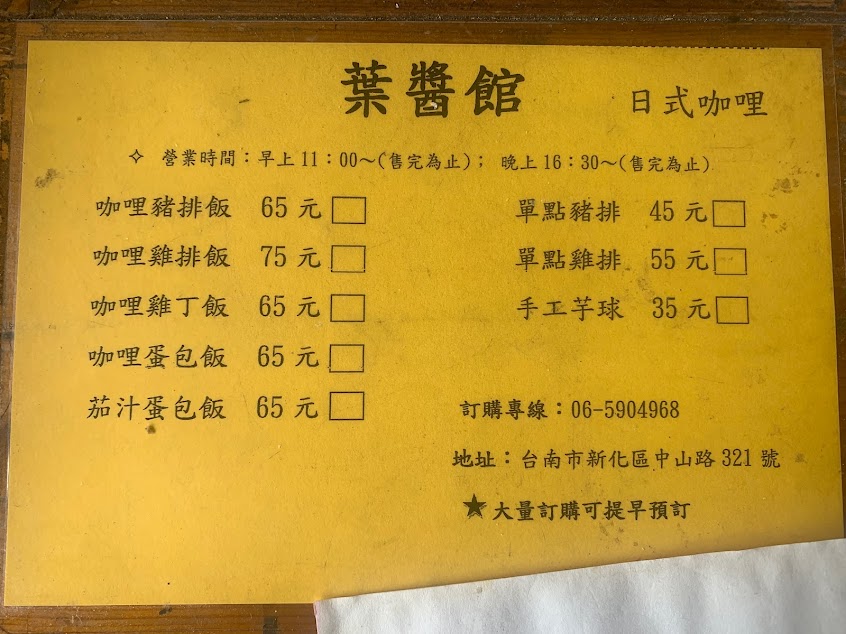 葉醬館 日式咖哩
✧ 營業時間：早上11：00～(售完為止)； 晚上16：30～(售完為止)
咖哩豬排飯 65元□ 單點豬排 45元□
咖哩雞排飯 75元□ 單點雞排 55元□
咖哩雞丁飯 65元□ 手工芋球 35元□
咖哩蛋包飯 65元□
茄汁蛋包飯 65元□
訂購專線：06-5904968
地址：台南市新化區中山路321號
★大量訂購可提早預訂